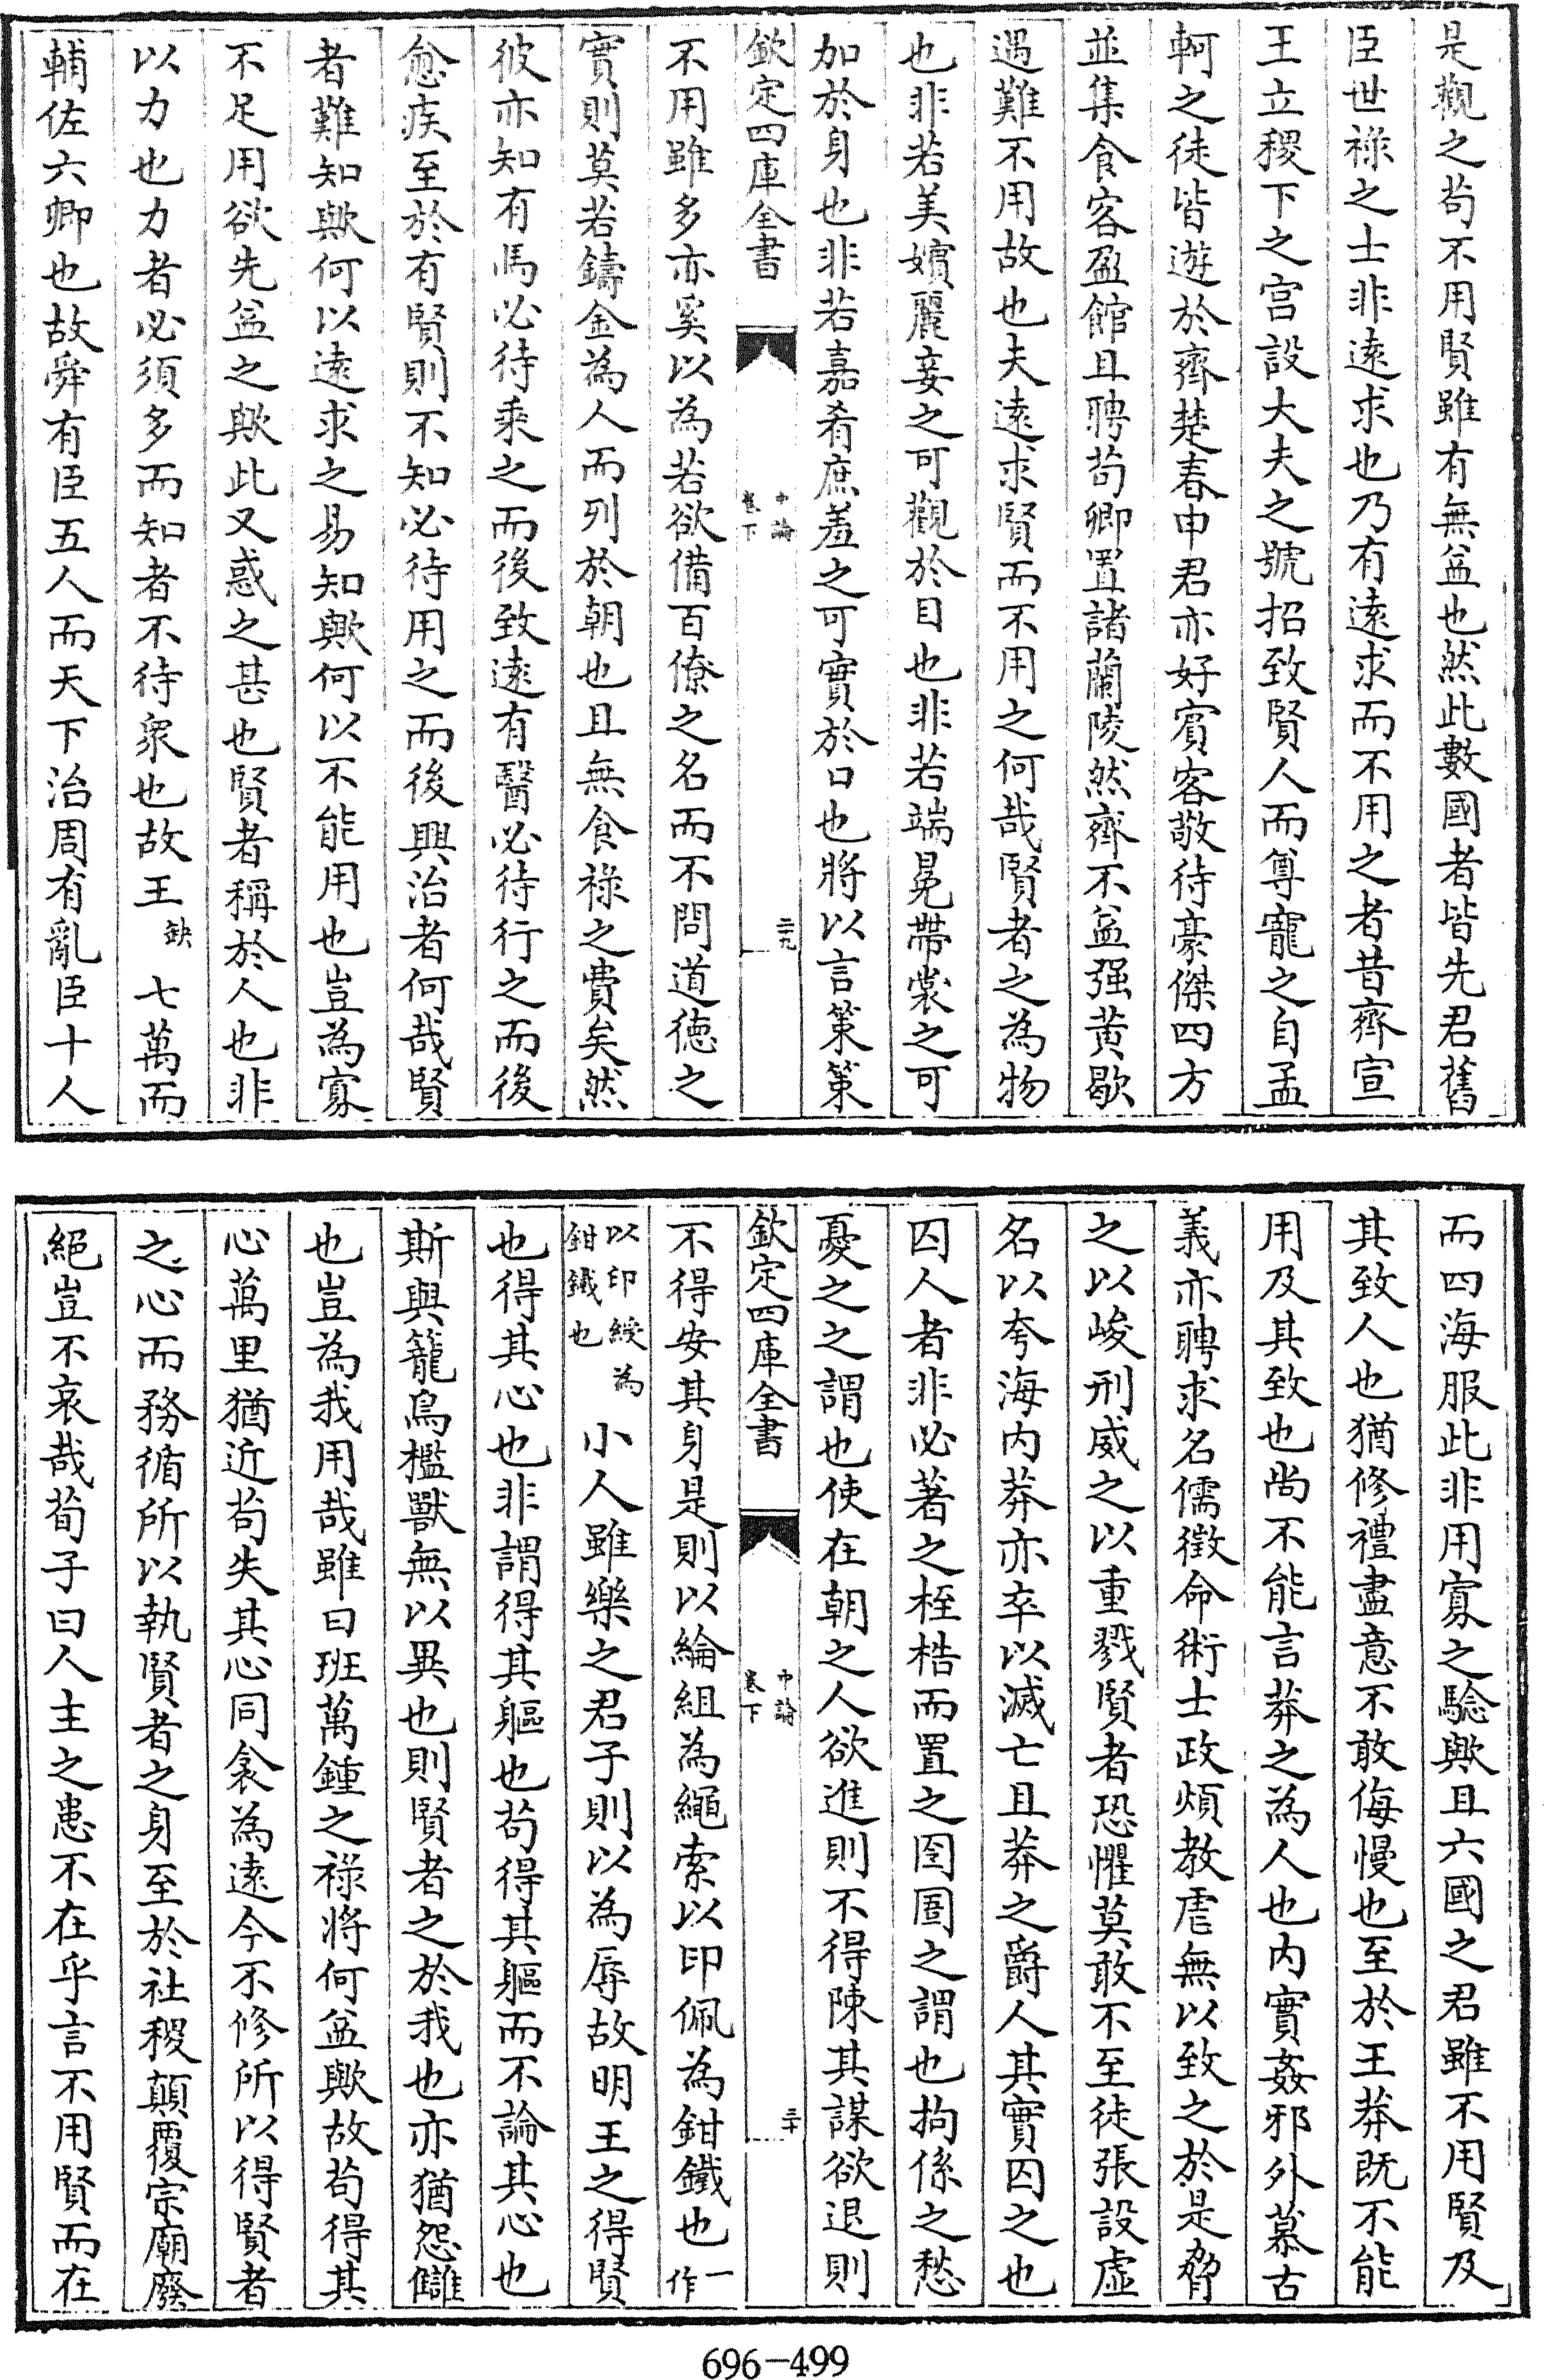 是觀之苟不用賢雖有無益也然此數國者皆先君舊
臣世祿之士非遠求也乃有遠求而不用之者昔齊宣
王立稷下之宮設大夫之號招致賢人而尊寵之自孟
軻之徒皆遊於齊楚春申君亦好賓客敬待豪傑四方
並集食客盈館且聘苟卿置諸蘭陵然齊不益强黄歇
遇難不用故也夫遠求賢而不用之何哉賢者之為物
也非若美嬪麗妾之可觀於目也非若端冕帶裳之可
加於身也非若嘉肴庶羞之可實於口也將以言策策
欽定四庫全書
中論
卷下
二十九
不用雖多亦奚以為若欲備百僚之名而不問道德之
實則莫若鑄金為人而列於朝也且無食祿之費矣然
彼亦知有馬必待乘之而後致遠有醫必待行之而後
愈疾至於有賢則不知必待用之而後興治者何哉賢
者難知歟何以遠求之易知歟何以不能用也豈為寡
不足用欲先益之歟此又惑之甚也賢者稱於人也非
以力也力者必須多而知者不待衆也故王缺 七萬而
輔佐六卿也故舜有臣五人而天下治周有亂臣十人
而四海服此非用寡之驗歟且六國之君雖不用賢及
其致人也猶修禮盡意不敢侮慢也至於王莽既不能
用及其致也尚不能言莽之為人也内實姦邪外慕古
義亦聘求名儒徵命術士政煩教虐無以致之於是脅
之以峻刑威之以重戮賢者恐懼莫敢不至徒張設虛
名以夸海内莽亦卒以滅亡且莽之爵人其實囚之也
囚人者非必著之桎梏而置之囹圄之謂也拘係之愁
憂之之謂也使在朝之人欲進則不得陳其謀欲退則
欽定四庫全書
中論
卷下
三十
不得安其身是則以綸組為繩索以印佩為鉗鐵也一作
以印綬為鉗鐵也 小人雖樂之君子則以為辱故明王之得賢
也得其心也非謂得其軀也苟得其軀而不論其心也
斯與籠鳥檻獸無以異也則賢者之於我也亦猶怨讎
也豈為我用哉雖曰班萬鍾之祿將何益歟故苟得其
心萬里猶近苟失其心同衾為遠今不修所以得賢者
之心而務循所以執賢者之身至於社稷顛覆宗廟廢
絕豈不哀哉荀子曰人主之患不在乎言不用賢而在
696-499